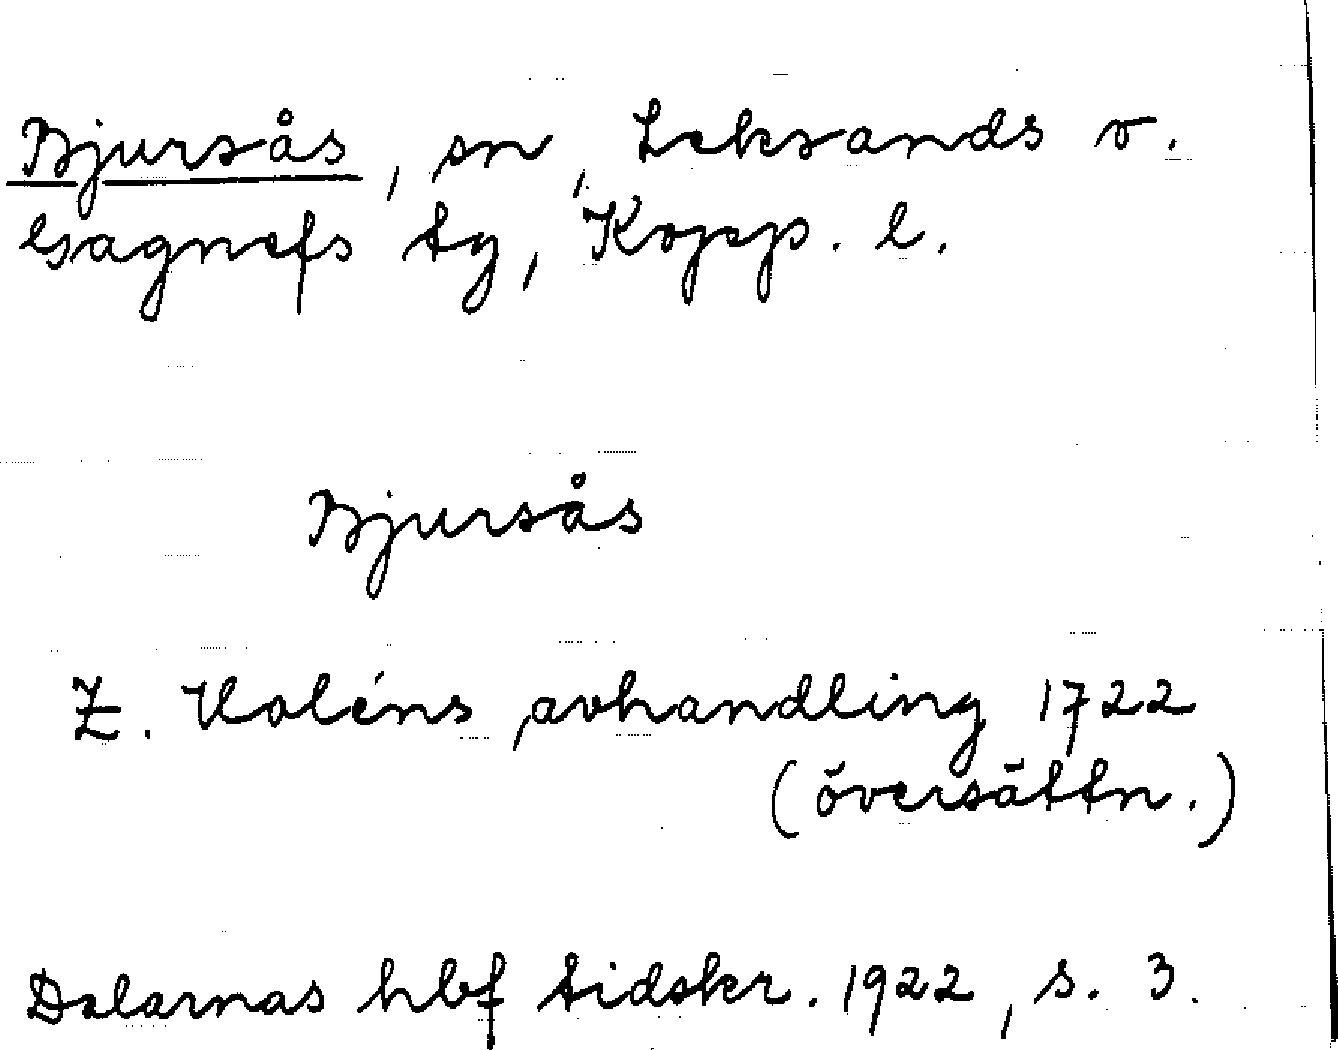 Bjursås, sn, Leksands o.
Gagnefs tg, Kopp. l.
Bjursås
Z. Holéns avhandling 1722
(översättn.)
Dalarnas hbf tidskr. 1922, s. 3.